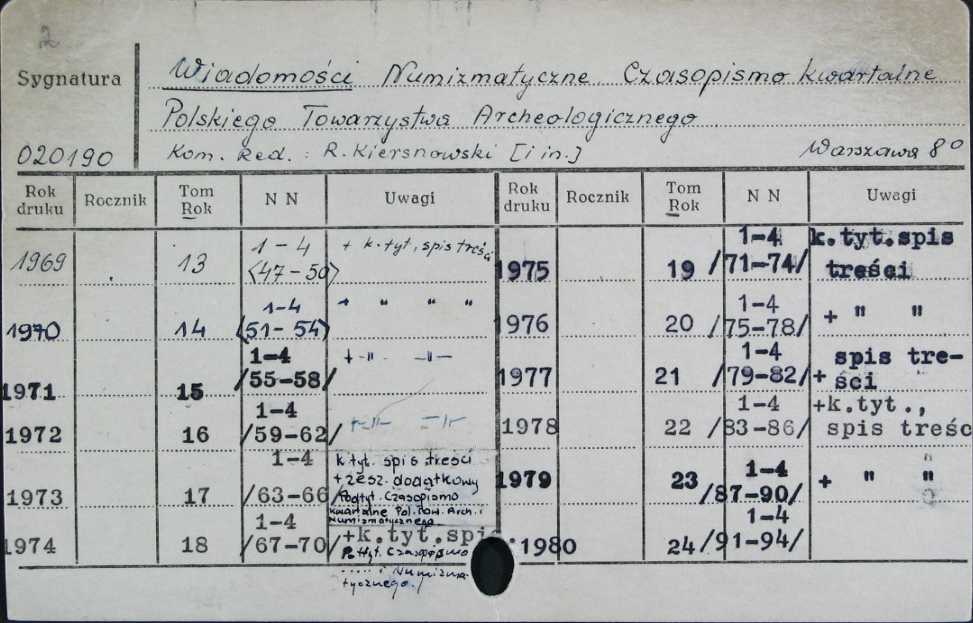 2
Sygnatura
Wiadomości Numizmatyczne. Czasopismo kwartalne
Polskiego Towarzystwa Archeologicznego
020190 Kom. Red.: R. Kiersnowski [i in.] Warszawa 8°
Rok druku Rocznik Tom Rok N N Uwagi
1969 13 1-4 <47-50> + k.tyt., spis treści
1970 14 1-4 <51-54> + " " "
1971 15 1-4 /55-58/ + -"- -"-
1972 16 1-4 /59-62/ +-"- -"-
1973 17 1-4 /63-66/ k.tyt. spis treści
+ zesz. dodatkowy
Podtyt. Czasopismo
kwartalne Pol. Tow. Arch. i
Numizmatycznego
1974 18 1-4 /67-70/ +k.tyt.spis.
Podtyt. Czasopismo
..... i Numizma-
tycznego.
Rok druku Rocznik Tom Rok N N Uwagi
1975 19 1-4 /71-74/ k.tyt.spis
treści
1976 20 1-4 /75-78/ + " "
1977 21 1-4 /79-82/ + spis tre-
ści
1978 22 1-4 /83-86/ +k.tyt.,
spis treśc
1979 23 1-4 /87-90/ + " "
1980 24 1-4 /91-94/